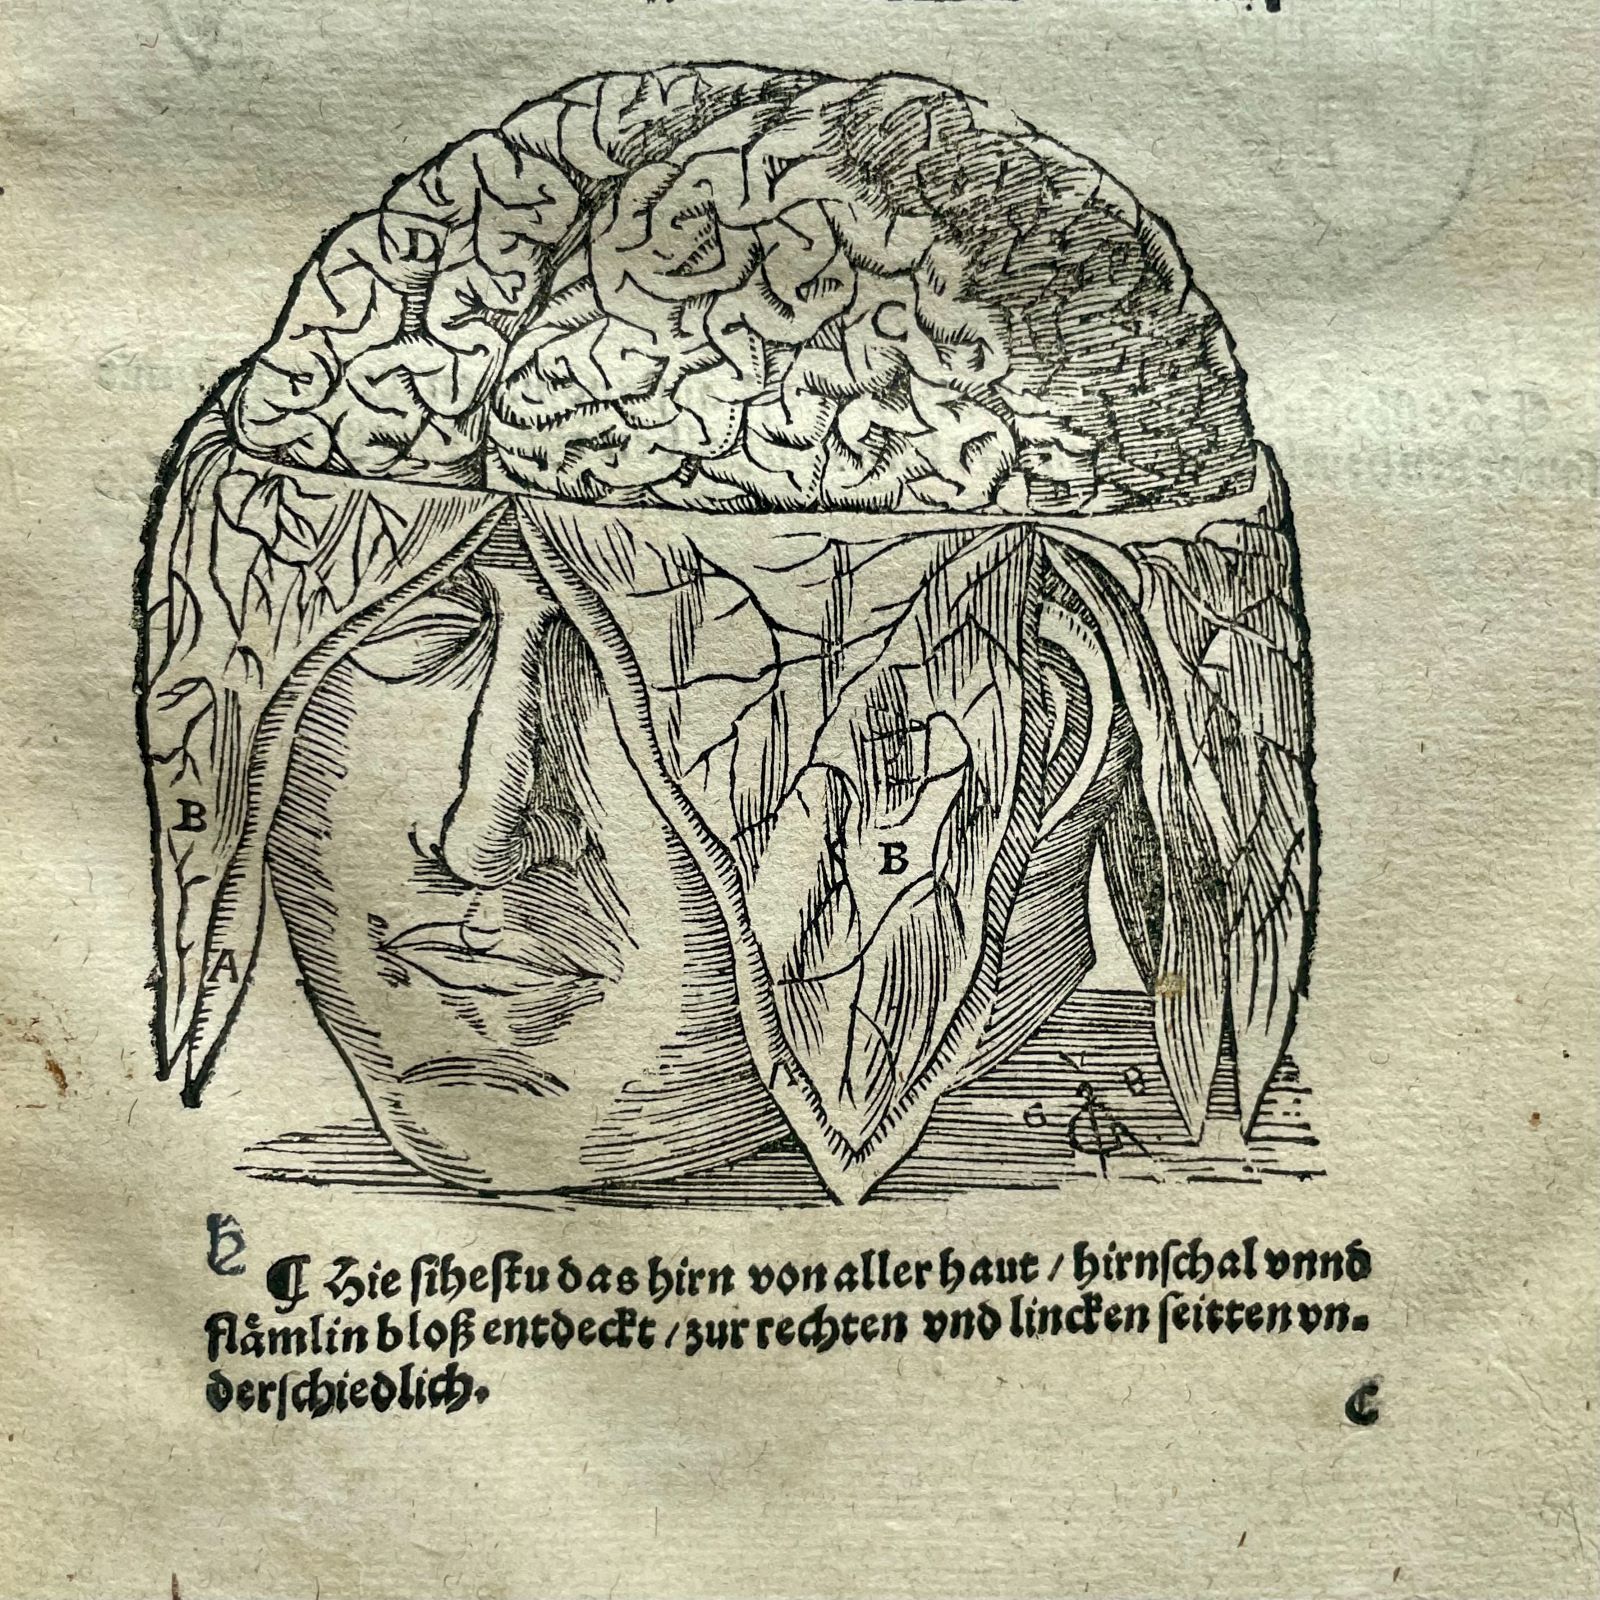 D
C
B
B
A
G B
h
¶ Hie sihestu das hirn von aller haut / hirnschal vnnd
flaͤmlin bloß entdeckt / zur rechten vnd lincken seitten vn⸗
derschiedlich.
C